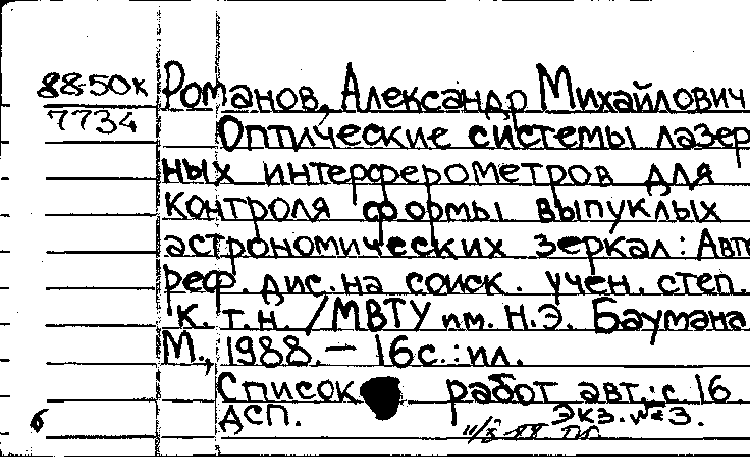 88-50к
7734
Романов, Александр Михайлович
Оптические системы лазер
ных интерферометров для
контроля формы выпуклых
астрономических зеркал: Авт
реф. дис. на соиск. учен. степ.
к.т.н. /МВТУ им. Н.Э. Баумана
М., 1988. — 16с.: ил.
Список работ авт.: с 16.
ДСП. Экз. №3.
б